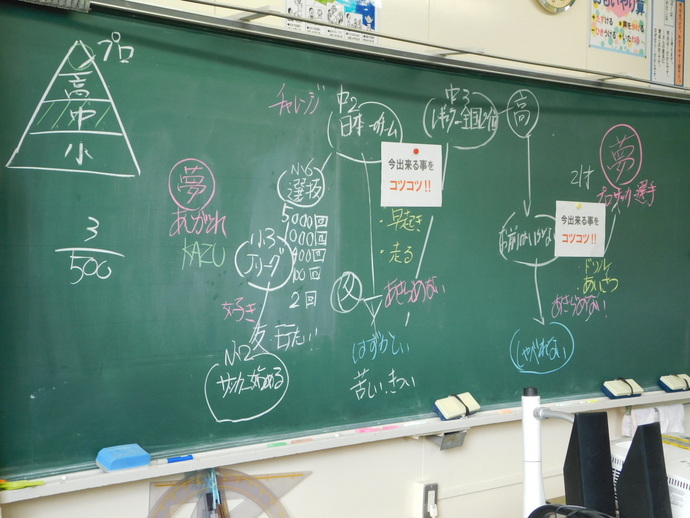 プロ
高
中
小
3
500
夢
あこがれ
KAZU
チャレンジ
中2
日本一のチーム
中3
レギュラー全国2位
高
夢
21才
プロサッカー選手
小6
選抜
5000回
1000回
100回
2回
小3
Jリーグ
好き
小2
サッカー始める
今出来る事を
コツコツ!!
・早起き
・走る
あきらめない
父
はずかしい
苦しい.きつい
今出来る事を
コツコツ!!
・ドリル
・あいさつ
あきらめない!
しゃべれない